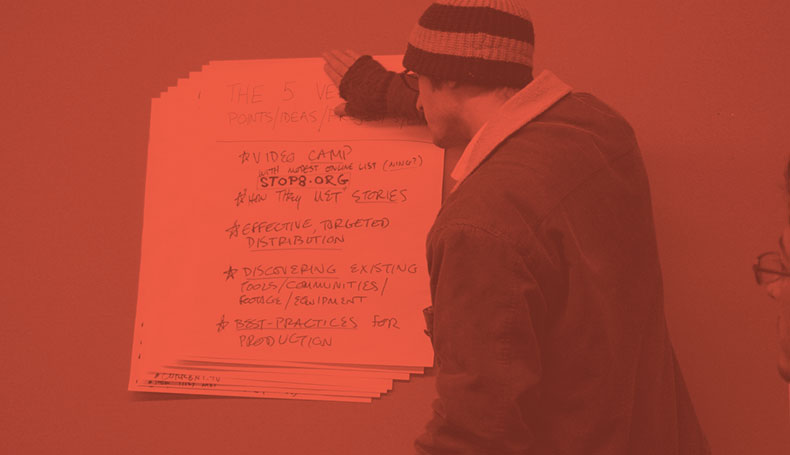 THE 5 VE
POINTS/IDEAS/
☆ VIDEO CAMP
WITH ONLINE LIST (NING?)
STOP8.ORG
☆ HOW THEY MET STORIES
☆ EFFECTIVE, TARGETED
DISTRIBUTION
☆ DISCOVERING EXISTING
TOOLS/COMMUNITIES/
FOOTAGE/EQUIPMENT
☆ BEST-PRACTICES FOR
PRODUCTION